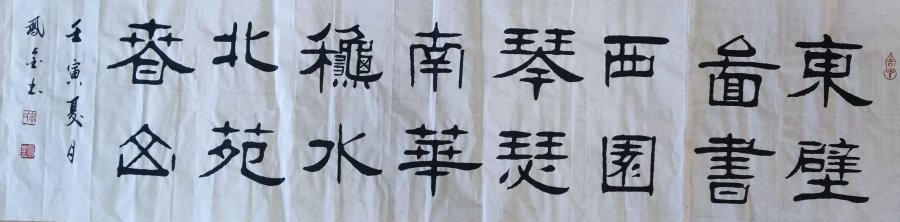 東壁
啚書
西園
琴瑟
南華
龝水
北苑
春山
壬寅夏月
鳳金书